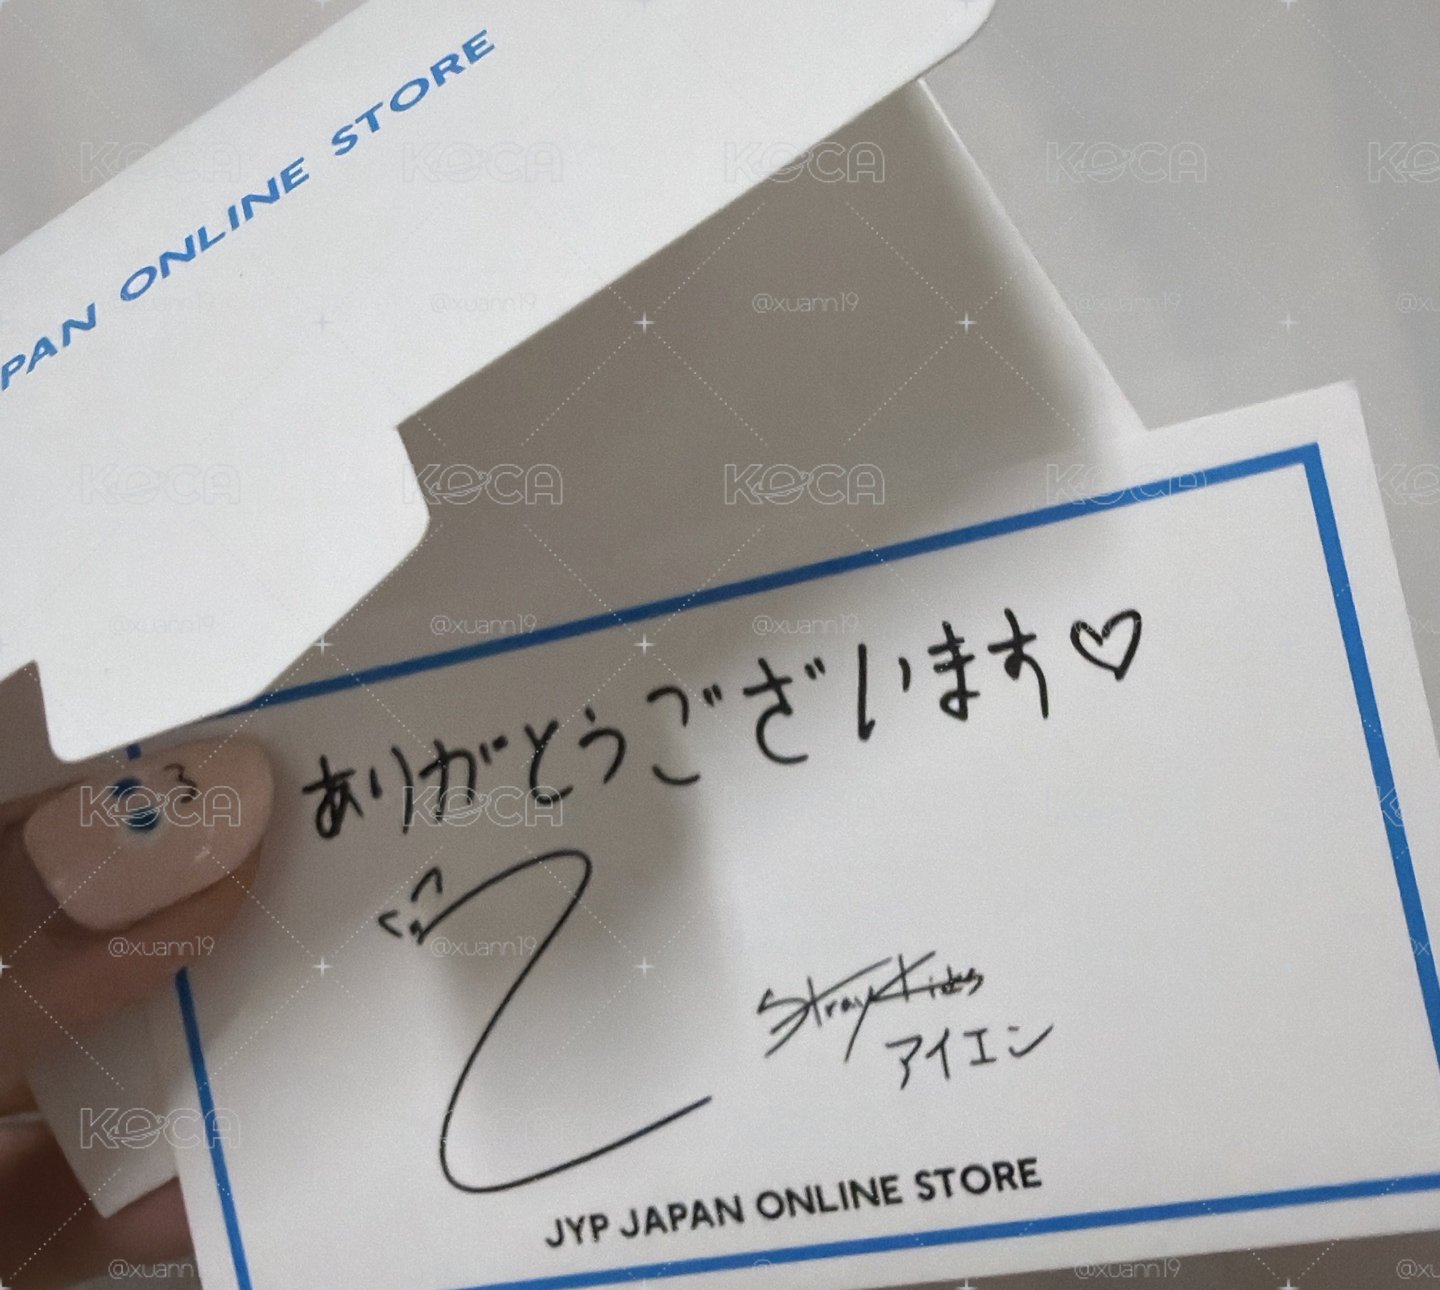 PAN ONLINE STORE
ありがとうございます♡
Stray Kids
アイエン
JYP JAPAN ONLINE STORE
KOCA
@xuann19